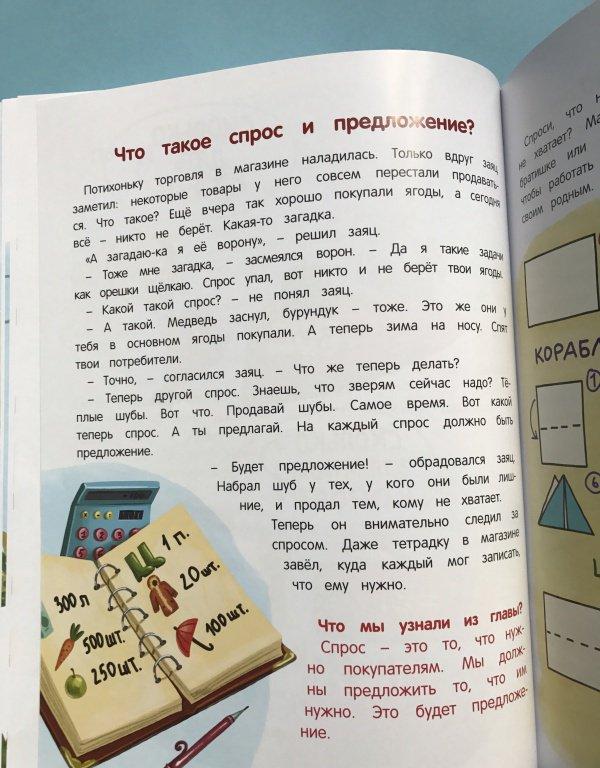 Что такое спрос и предложение?
Потихоньку торговля в магазине наладилась. Только вдруг заяц
заметил: некоторые товары у него совсем перестали продавать-
ся. Что такое? Ещё вчера так хорошо покупали ягоды, а сегодня
всё – никто не берёт. Какая-то загадка.
«А загадаю-ка я её ворону», – решил заяц.
– Тоже мне загадка, – засмеялся ворон. – Да я такие задачи
как орешки щёлкаю. Спрос упал, вот никто и не берёт твои ягоды.
– Какой такой спрос? – не понял заяц.
– А такой. Медведь заснул, бурундук – тоже. Это же они у
тебя в основном ягоды покупали. А теперь зима на носу. Спят
твои потребители.
– Точно, – согласился заяц. – Что же теперь делать?
– Теперь другой спрос. Знаешь, что зверям сейчас надо? Тё-
плые шубы. Вот что. Продавай шубы. Самое время. Вот какой
теперь спрос. А ты предлагай. На каждый спрос должно быть
предложение.
– Будет предложение! – обрадовался заяц.
Набрал шуб у тех, у кого они были лиш-
ние, и продал тем, кому не хватает.
Теперь он внимательно следил за
спросом. Даже тетрадку в магазине
завёл, куда каждый мог записать,
что ему нужно.
300 л
500 шт.
250 шт.
1 п.
20 шт.
100 шт.
Что мы узнали из главы?
Спрос – это то, что нуж-
но покупателям. Мы долж-
ны предложить то, что им
нужно. Это будет предложе-
ние.
Спроси, что
не хватает?
братишке или
чтобы работать
своим родным.
КОРАБЛ
1
6